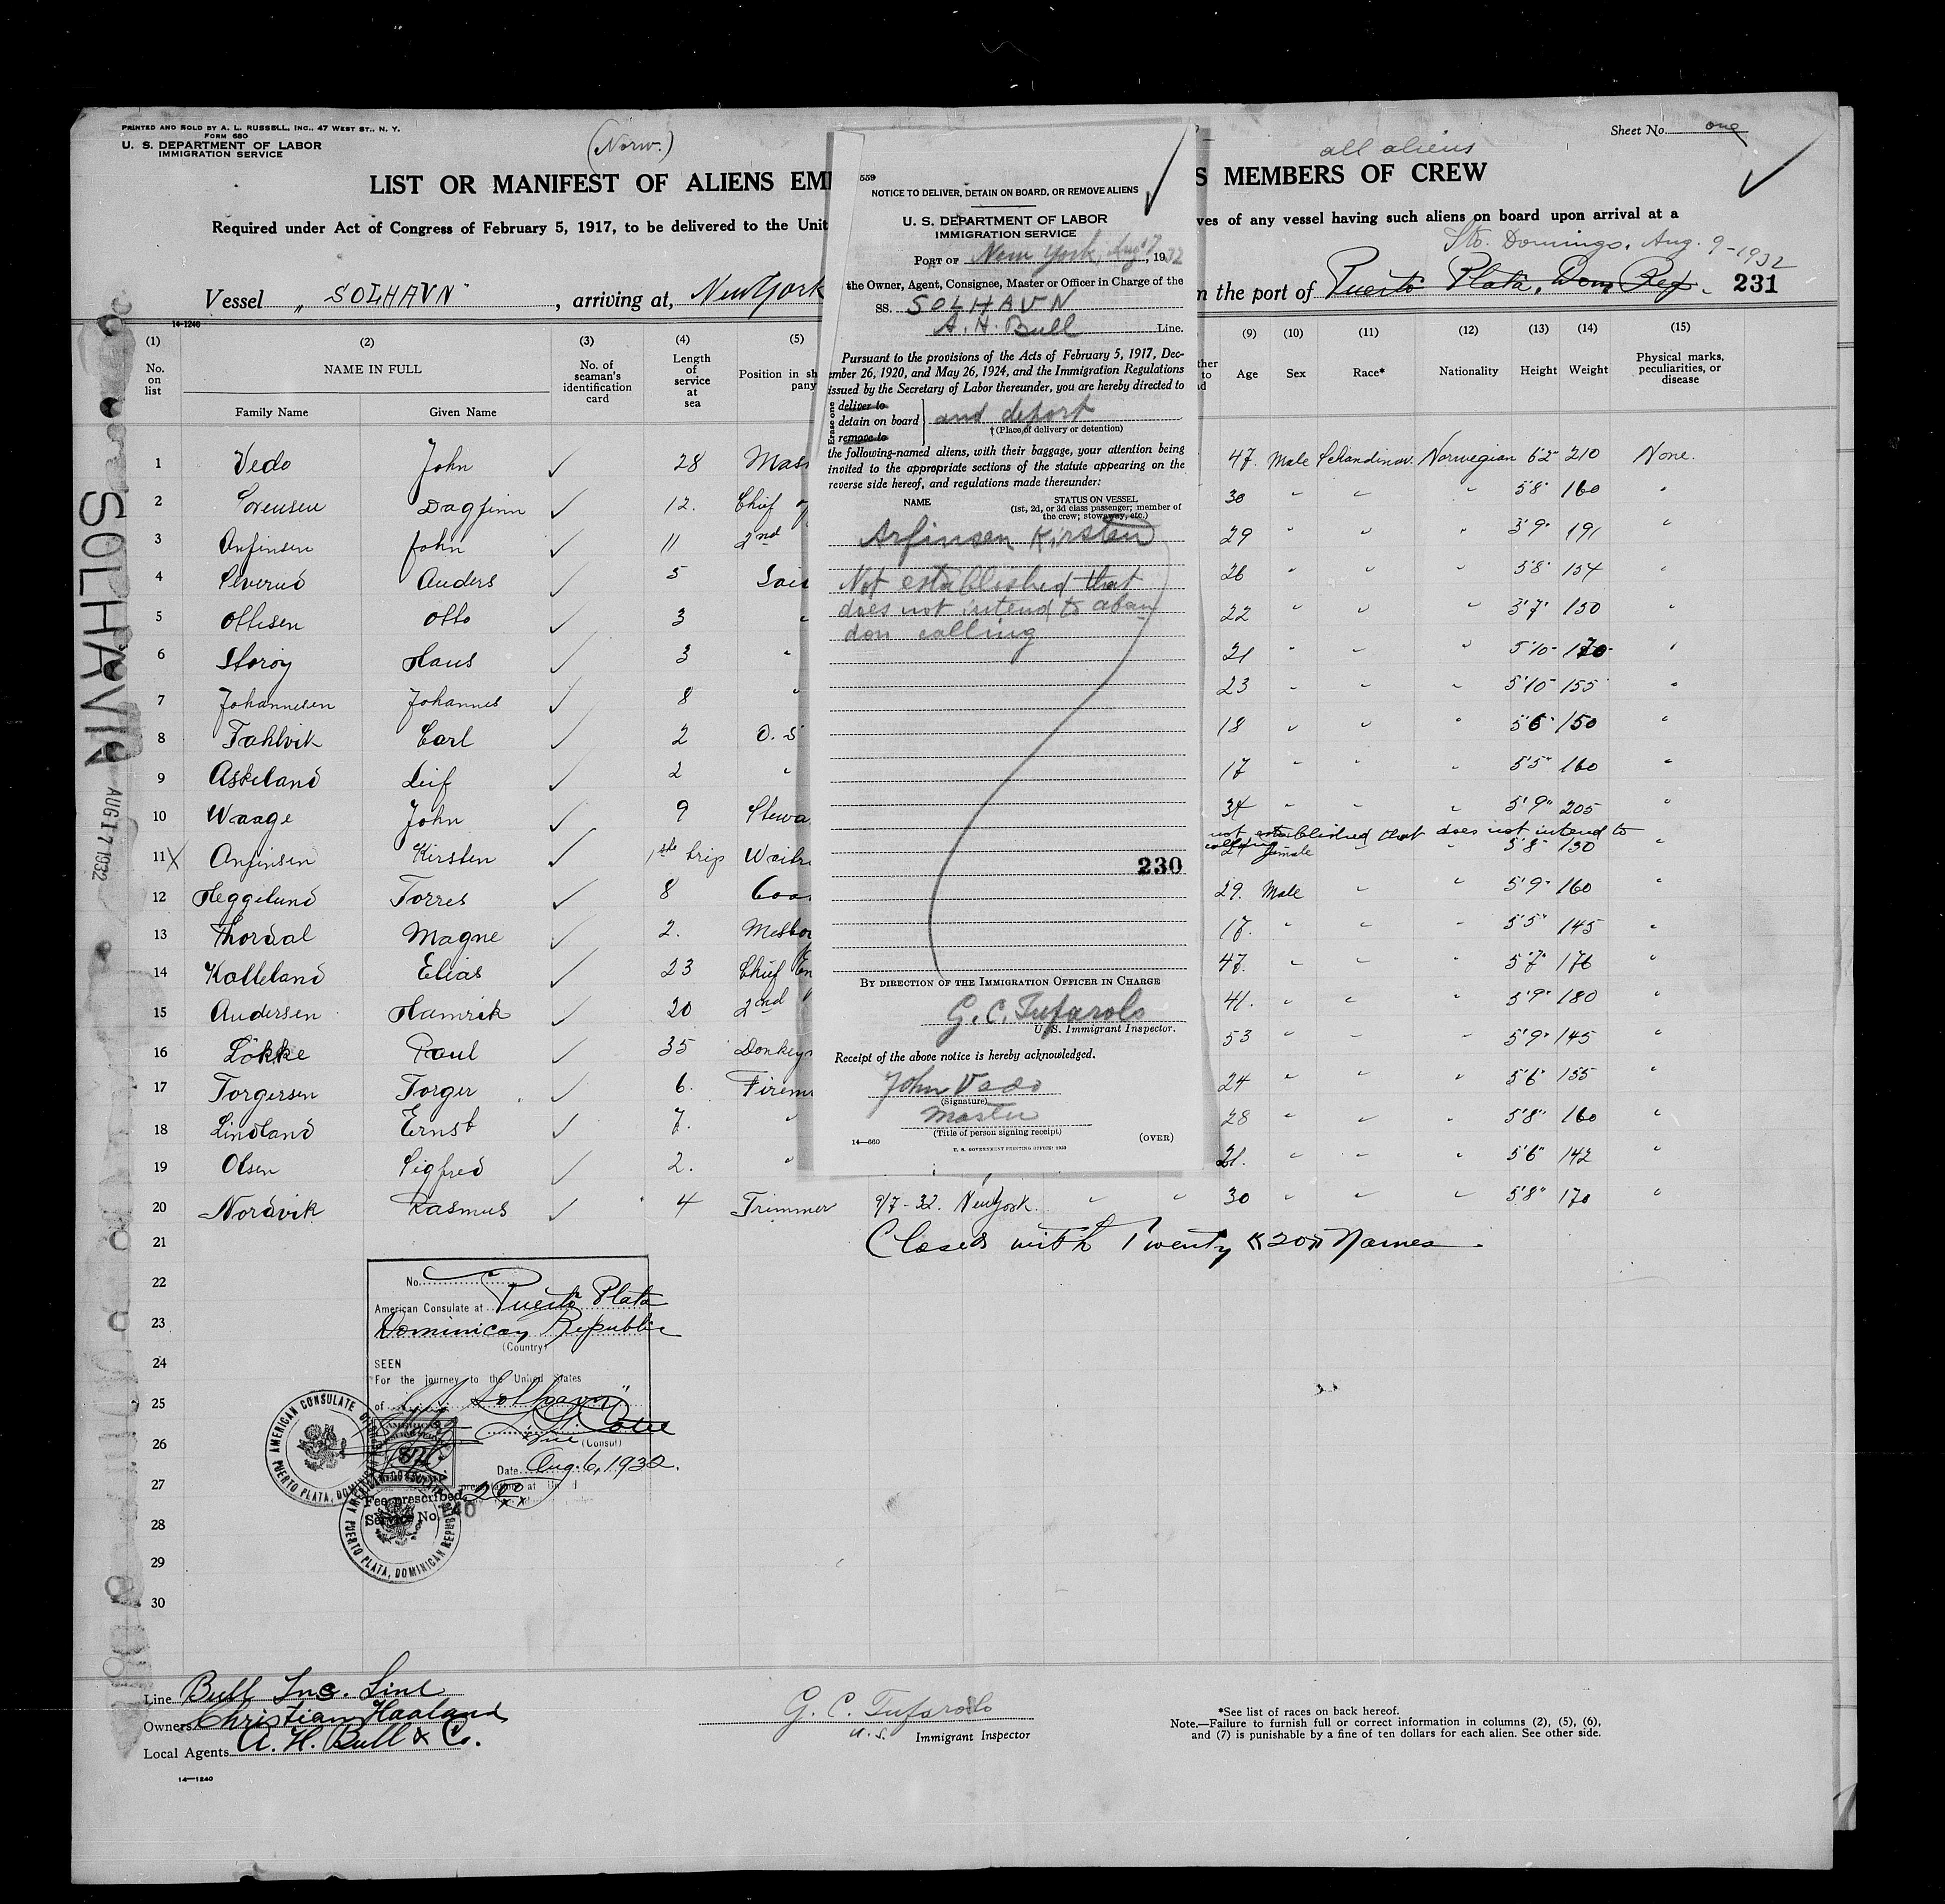 PRINTED AND SOLD BY A. L. RUSSELL, INC., 47 WEST ST., N. Y.
FORM 680
U. S. DEPARTMENT OF LABOR
IMMIGRATION SERVICE
(Norw.)
Sheet No. one
all aliens
LIST OR MANIFEST OF ALIENS EM
S MEMBERS OF CREW
Required under Act of Congress of February 5, 1917, to be delivered to the Unit
ves of any vessel having such aliens on board upon arrival at a
Sto. Domingo, Aug. 9-1932
Vessel "SOLHAVN" , arriving at, New York
n the port of Puerto Plata, Dom. Rep. 231
14-1240
(1) (2) (3) (4) (5)
(9) (10) (11) (12) (13) (14) (15)
No. on list
NAME IN FULL
Family Name Given Name
No. of seaman's identification card
Length of service at sea
Position in sh
pany
Age Sex Race* Nationality Height Weight
Physical marks, peculiarities, or disease
1 Vedo John ✓ 28 Mas 47. Male Schandinav. Norwegian 6'2" 210 None.
2 Sorensen Dagfinn ✓ 12. Chief 30 " " " 5'8" 160 "
3 Anfinsen John ✓ 11 2nd 29 " " " 191 "
4 Anders ✓ 5 26 " " " 5'8" 154 "
5 Ottesen Otto ✓ 3 " 22 " " " 150 "
6 Storoy Hans ✓ 3 " 21 " " " 5'10" 170 "
7 Johannesen Johannes ✓ 8 " 23 " " " 5'10" 155 "
8 Fahlvik Carl ✓ 2 O. S 18 " " " 5'6" 150 "
9 Askeland Leif ✓ 2 " 17 " " " 5'5" 160 "
10 Waage John ✓ 9 Stewa 34 " " " 5'9" 205 "
not established that does not intend to
calling
11 X Anfinsen Kirsten ✓ 1ste trip Waitr 21 female " " 5'8" 130 "
12 Heggelund Torres ✓ 8 Coo 29. Male " " 5'9" 160 "
13 Thordal Magne ✓ 2. Messbo 17. " " " 5'5" 145 "
14 Kalleland Elias ✓ 23 Chief En 47. " " " 5'7" 176 "
15 Andersen Hamrik ✓ 20 2nd 41. " " " 5'9" 180 "
16 Lökke Paul ✓ 35 Donkey 53 " " " 5'9" 145 "
17 Torgersen Torger ✓ 6. Firem 24 " " " 5'6" 155 "
18 Lindland Ernst ✓ 7. " 28 " " " 5'8" 160 "
19 Olsen Sigfred ✓ 2. " 21. " " " 5'6" 142 "
20 Nordvik Rasmus ✓ 4 Trimmer 9/7-32. New York. " " 30 " " " 5'8" 170 "
21 Closed with Twenty «20» Names
22
23
24
25
26
27
28
29
30
559
NOTICE TO DELIVER, DETAIN ON BOARD, OR REMOVE ALIENS
U. S. DEPARTMENT OF LABOR
IMMIGRATION SERVICE
PORT OF New York, Aug 17, 1932
the Owner, Agent, Consignee, Master or Officer in Charge of the
SS. SOLHAVN
A. H. Bull Line.
Pursuant to the provisions of the Acts of February 5, 1917, Dec-
ember 26, 1920, and May 26, 1924, and the Immigration Regulations
issued by the Secretary of Labor thereunder, you are hereby directed to
Erase one
deliver to
detain on board and deport
remove to
†(Place of delivery or detention)
the following-named aliens, with their baggage, your attention being
invited to the appropriate sections of the statute appearing on the
reverse side hereof, and regulations made thereunder:
NAME STATUS ON VESSEL
(1st, 2d, or 3d class passenger; member of
the crew; stowaway, etc.)
Arfinsen Kirsten
Not established that
does not intend to aban
don calling
230
BY DIRECTION OF THE IMMIGRATION OFFICER IN CHARGE
G. C. Tufarolo
U. S. Immigrant Inspector.
Receipt of the above notice is hereby acknowledged.
John Vedo
(Signature)
Master
(Title of person signing receipt)
14—660 (OVER)
U. S. GOVERNMENT PRINTING OFFICE: 1932
SOLHAVN
AUG 17 1932
No.
American Consulate at Puerto Plata
Dominican Republic
(Country)
SEEN
For the journey to the United States
of Solhavn"
Vice (Consul)
Date Aug. 6, 1932.
Fee prescribed
Service No. 140
AMERICAN CONSULATE
PUERTO PLATA, DOMINICAN REPUBLIC
PUERTO PLATA, DOMINICAN REPUBLIC
Line Bull Inc. Line
Owners Christian Haaland
Local Agents A. H. Bull & Co.
14—1240
G. C. Tufarolo
U. S. Immigrant Inspector
*See list of races on back hereof.
Note.—Failure to furnish full or correct information in columns (2), (5), (6),
and (7) is punishable by a fine of ten dollars for each alien. See other side.